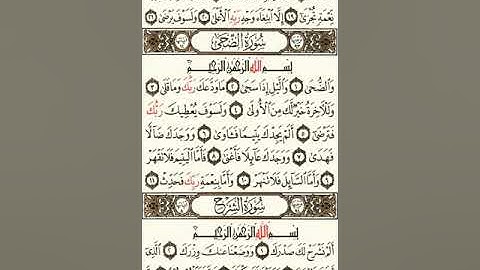 نِعْمَةٍ تُجْزَىٰٓ ١٩ إِلَّا ٱبْتِغَآءَ وَجْهِ رَبِّهِ ٱلْأَعْلَىٰ ٢٠ وَلَسَوْفَ يَرْضَىٰ ٢١
سُورَةُ الضُّحَىٰ
بِسْمِ ٱللَّهِ ٱلرَّحْمَٰنِ ٱلرَّحِيمِ
وَٱلضُّحَىٰ ١ وَٱلَّيْلِ إِذَا سَجَىٰ ٢ مَا وَدَّعَكَ رَبُّكَ وَمَا قَلَىٰ ٣
وَلَلْءَاخِرَةُ خَيْرٌ لَّكَ مِنَ ٱلْأُولَىٰ ٤ وَلَسَوْفَ يُعْطِيكَ رَبُّكَ
فَتَرْضَىٰٓ ٥ أَلَمْ يَجِدْكَ يَتِيمًا فَـَٔاوَىٰ ٦ وَوَجَدَكَ ضَآلًّا
فَهَدَىٰ ٧ وَوَجَدَكَ عَآئِلًا فَأَغْنَىٰ ٨ فَأَمَّا ٱلْيَتِيمَ فَلَا تَقْهَرْ
٩ وَأَمَّا ٱلسَّآئِلَ فَلَا تَنْهَرْ ١٠ وَأَمَّا بِنِعْمَةِ رَبِّكَ فَحَدِّثْ ١١
سُورَةُ الشَّرْحِ
بِسْمِ ٱللَّهِ ٱلرَّحْمَٰنِ ٱلرَّحِيمِ
أَلَمْ نَشْرَحْ لَكَ صَدْرَكَ ١ وَوَضَعْنَا عَنكَ وِزْرَكَ ٢ ٱلَّذِىٓ